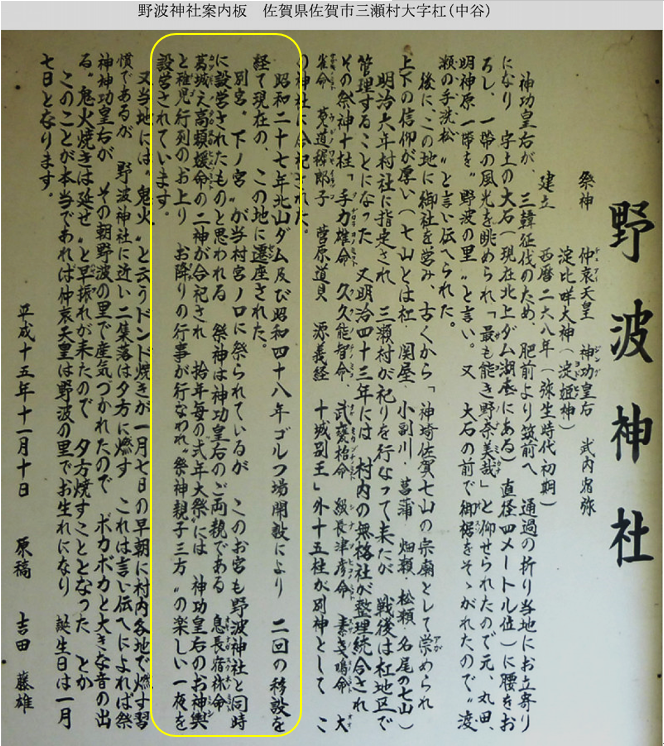 野波神社案内板　佐賀県佐賀市三瀬村大字杠（中谷）
野波神社
祭神　仲哀天皇　神功皇古　武内宿弥
淀比咩大神（淀姫神）
建立　西暦二六八年（弥生時代初期）
神功皇古が、三韓征伐のため、肥前より筑前へ　通過の折り当地にお立寄り
になり　字土の大石（現在北山ダム湖底にある）直径四メートル位）に腰をお
ろし、一帯の風光を眺められ「最も能き野奈美哉」と仰せられたので元、丸田、
明神原一帯を〝野波の里〟と言い。又　大石の前で御裾をそゝがれたので〝渡
瀬の手洗松〟と言い伝へられた。
後に、この地に御社を営み、古くから「神埼佐賀七山の宗廟として崇められ
上下の信仰が厚い（七山とは杠・関屋・小副川・菖蒲・畑瀬・松瀬・名尾の七山）
明治六年村社に指定され　三瀬村が祀りを行なって来たが　戦後は杠地区で
管理することになった　又明治四十三年には　村内の無格社が整理統合され
その祭神十柱「手力雄命　久久能智命　武甕槌命　級長津彦命　素戔嗚命　大
雀命　菟道稚郎子　菅原道真　源義経　十城別王」外十五柱が別神として　こ
の神社に合祀された。
昭和二十七年北山ダム及び昭和四十八年ゴルフ場開設により　二回の移設を
経て現在の、この地に遷座された。
別宮〝下ノ宮〟が当村宮ノ口に祭られているが　このお宮も野波神社と同時
に設営されたものと思われる　祭神は神功皇右のご両親である　息長宿祢命
葛城之高額媛命の二神が合祀され　拾年毎の式年大祭には　神功皇右のお神輿
と稚児行列のお上り　お降りの行事が行なわれ〝祭神親子三方〟の楽しい一夜を
設営されています。
又当地には〝鬼火〟と云うドンド焼きが一月七日の早朝に村内各地で燃す習
慣であるが　野波神社に近い二集落は夕方に燃す　これは言い伝へによれば祭
神神功皇右が　その朝野波の里で産気づかれたので　ボカボカと大きな音の出
る〝鬼火焼きは延せ〟と早振れが来たので　夕方焼すことゝなった　とか
このことが本当であれば仲哀天皇は野波の里でお生れになり　誕生日は一月
七日となります。
平成十五年十一月十日　原稿　吉田　藤雄